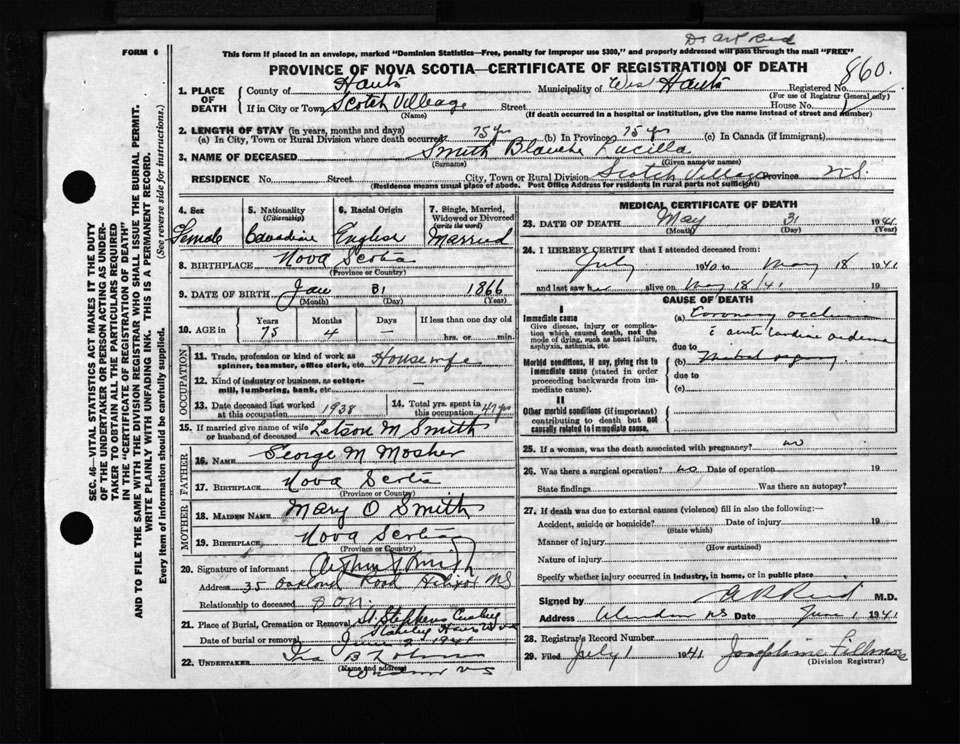 Dr A R Reid
FORM 6
This form if placed in an envelope, marked "Dominion Statistics—Free, penalty for improper use $300," and properly addressed will pass through the mail "FREE"
PROVINCE OF NOVA SCOTIA—CERTIFICATE OF REGISTRATION OF DEATH
860.
1. PLACE OF DEATH
County of Hants Municipality of West Hants Registered No.
(For use of Registrar General only)
If in City or Town Scotch Village Street House No.
(Name) (If death occurred in a hospital or institution, give the name instead of street and number)
2. LENGTH OF STAY (in years, months and days)
(a) In City, Town or Rural Division where death occurred 75 yrs (b) In Province 75 yrs (c) In Canada (if immigrant)
3. NAME OF DECEASED Smith Blanche Lucilla
(Surname) (Given name or names)
RESIDENCE No. Street City, Town or Rural Division Scotch Village Province N.S.
(Residence means usual place of abode. Post Office Address for residents in rural parts not sufficient)
4. Sex
Female
5. Nationality
(Citizenship)
Canadian
6. Racial Origin
English
7. Single, Married, Widowed or Divorced
(write the word)
Married
8. BIRTHPLACE Nova Scotia
(Province or Country)
9. DATE OF BIRTH Jan 31 1866
(Month) (Day) (Year)
10. AGE in
Years Months Days If less than one day old
75 4 — hrs. or min.
OCCUPATION
11. Trade, profession or kind of work as spinner, teamster, office clerk, etc. Housewife
12. Kind of industry or business, as cotton-mill, lumbering, bank, etc. —
13. Date deceased last worked at this occupation 1938
14. Total yrs. spent in this occupation 47 yrs
15. If married give name of wife or husband of deceased Letson M Smith
FATHER
16. NAME George M Mosher
17. BIRTHPLACE Nova Scotia
(Province or Country)
MOTHER
18. MAIDEN NAME Mary O Smith
19. BIRTHPLACE Nova Scotia
(Province or Country)
20. Signature of informant Smith
Address 35 Oakland Road Halifax NS
Relationship to deceased son
21. Place of Burial, Cremation or Removal St. Stephens
Stanley Hants
Date of burial or removal June 2 1941
22. UNDERTAKER Ira B
(Name and address)
Windsor NS
MEDICAL CERTIFICATE OF DEATH
23. DATE OF DEATH May 31 19
(Month) (Day) (Year)
24. I HEREBY CERTIFY that I attended deceased from:
July 1940 to May 18 1941
and last saw her alive on May 18/41 19
CAUSE OF DEATH
I
Immediate cause
Give disease, injury or complication which caused death, not the mode of dying, such as heart failure, asphyxia, asthenia, etc.
(a) Coronary
acute cardiac oedema
due to
Morbid conditions, if any, giving rise to immediate cause (stated in order proceeding backwards from immediate cause).
(b) Mitral
due to
(c)
II
Other morbid conditions (if important) contributing to death but not causally related to immediate cause.
25. If a woman, was the death associated with pregnancy? no
26. Was there a surgical operation? no Date of operation 19
State findings Was there an autopsy?
27. If death was due to external causes (violence) fill in also the following:—
Accident, suicide or homicide? Date of injury 19
(State which)
Manner of injury
(How sustained)
Nature of injury
Specify whether injury occurred in industry, in home, or in public place
Signed by A R Reid M.D.
Address Windsor NS Date June 1 1941
28. Registrar's Record Number
29. Filed July 1 1941 Josephine Fillmore
(Division Registrar)
SEC. 46—VITAL STATISTICS ACT MAKES IT THE DUTY
OF THE UNDERTAKER OR PERSON ACTING AS UNDER-
TAKER TO OBTAIN ALL THE PARTICULARS REQUIRED
IN THE "CERTIFICATE OF REGISTRATION OF DEATH"
AND TO FILE THE SAME WITH THE DIVISION REGISTRAR WHO SHALL ISSUE THE BURIAL PERMIT.
WRITE PLAINLY WITH UNFADING INK. THIS IS A PERMANENT RECORD.
Every item of information should be carefully supplied. (See reverse side for instructions.)